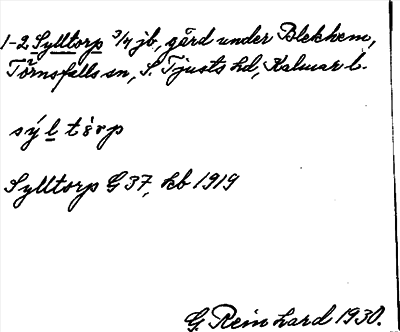 1-2 Sylltorp 3/4 jb, gård under Blekhem,
Törnsfalls sn, S. Tjusts hd, Kalmar l.
sýl tòrp
Sylltorp G 37, kb 1919
G. Reinhard 1930.